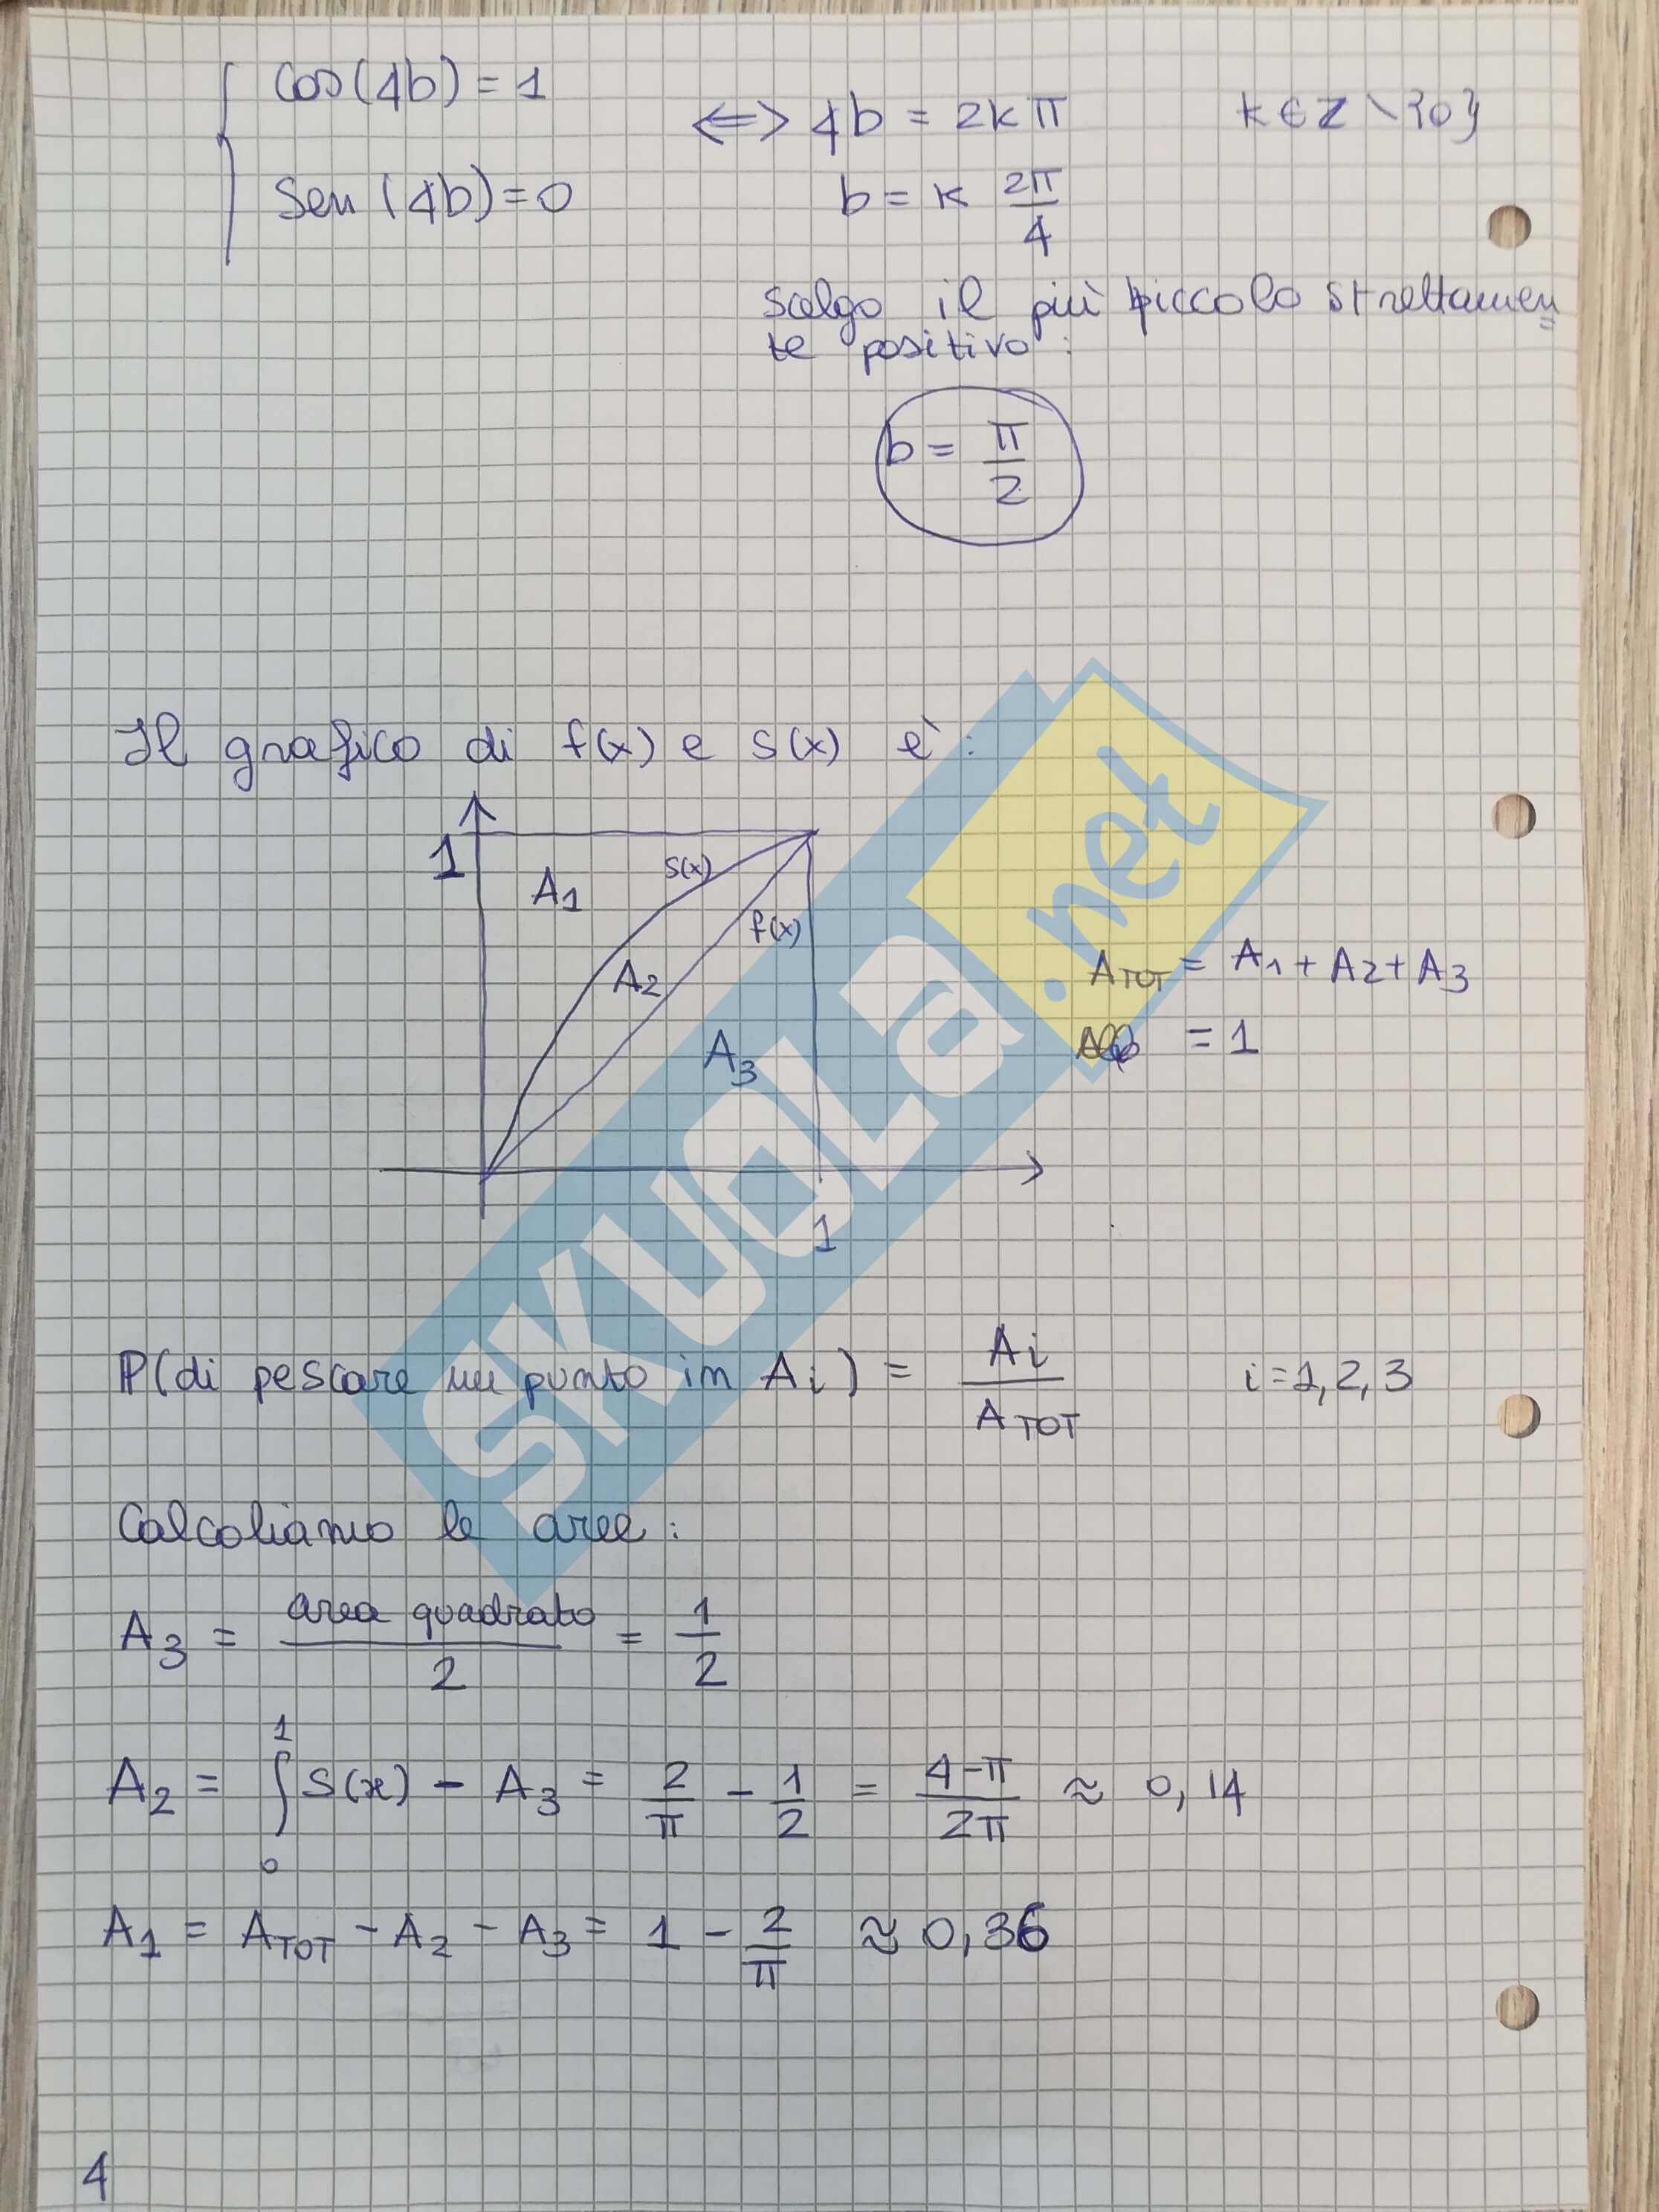 cos(4b) = 1
⟺ 4b = 2kπ   k ∈ Z \ {0}
sen(4b) = 0
b = k 2π/4
scelgo il più piccolo strettamen=
te positivo:
b = π/2
Il grafico di f(x) e s(x) è:
1
A1
s(x)
f(x)
A2
A3
1
ATOT = A1 + A2 + A3
= 1
SKUOLa.net
P(di pescare un punto in Ai) = Ai/ATOT   i = 1, 2, 3
Calcoliamo le aree:
A3 = area quadrato/2 = 1/2
A2 = ∫₀¹ s(x) - A3 = 2/π - 1/2 = 4-π/2π ≈ 0,14
A1 = ATOT - A2 - A3 = 1 - 2/π ≈ 0,36
4